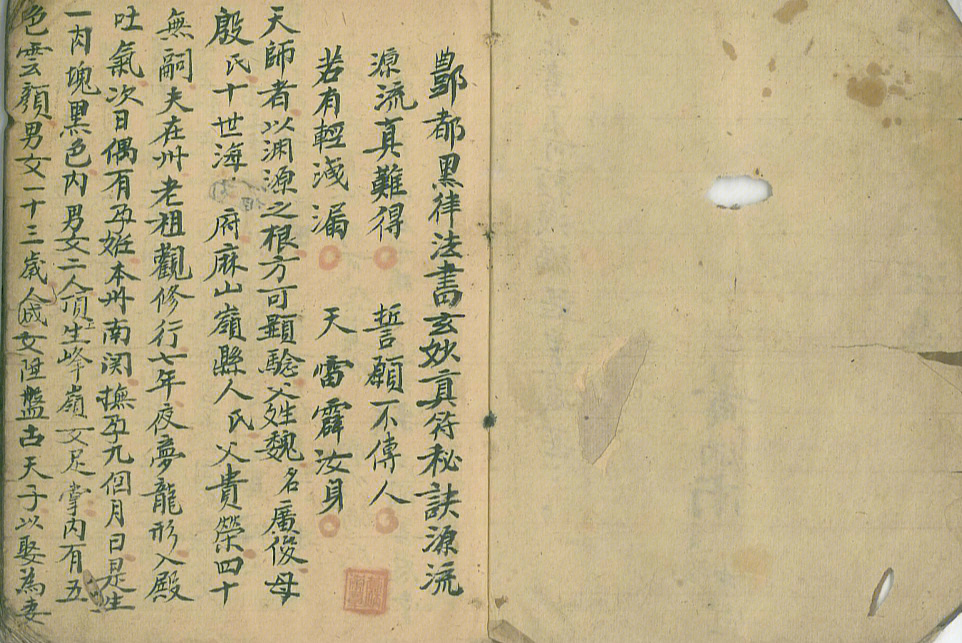 酆都黑律法書玄妙真符秘訣源流
源流真難得 誓願不傳人
若有輕淺漏 天雷霹汝身
天師者以渊源之根方可顯騐父姓魏名廣俊母
殷氏十世海 府麻山嶺縣人氏父貴榮四十
無嗣夫在州老祖觀修行七年夜夢龍形入殿
吐氣次日偶有孕姙本州南関撫孕九個月日是生
一肉塊黑色内男女二人頂上生峰嶺女足掌内有五
色雲顏男女一十三歲人成女 盤古天子以娶為妻